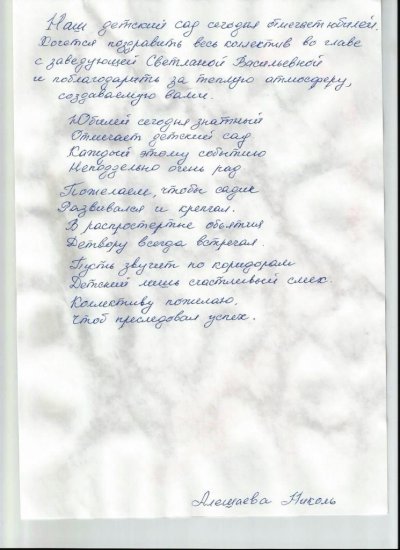 Наш детский сад сегодня отмечает юбилей.
Хочется поздравить весь коллектив во главе
с заведующей Светланой Васильевной
и поблагодарить за теплую атмосферу,
создаваемую вами.
Юбилей сегодня знатный
Отмечает детский сад
Каждый этому событию
Неподдельно очень рад
Пожелаем, чтобы садик
Развивался и крепчал.
В распростертые объятия
Детвору всегда встречал.
Пусть звучит по коридорам
Детский лишь счастливый смех.
Коллективу пожелаю,
Чтоб преследовал успех.
Алещаева Николь